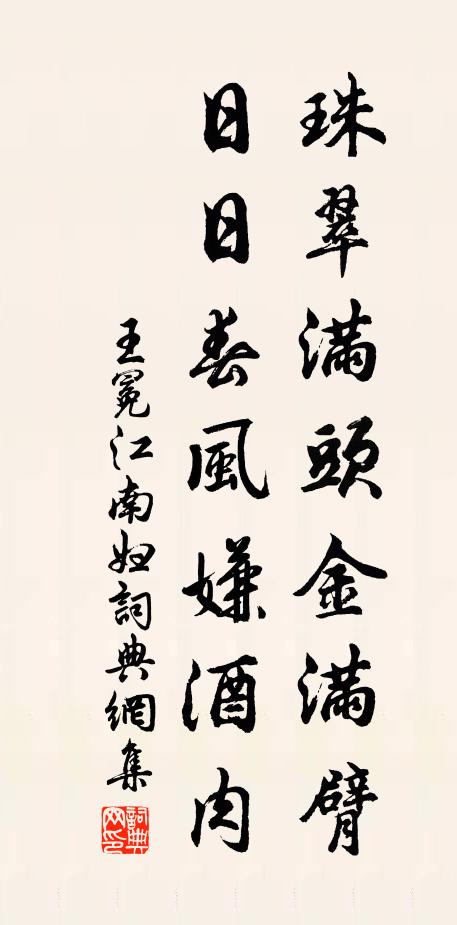 珠翠滿頭金滿臂
日日春風嫌酒肉
王冕江南妇詞典網集
詞典網印